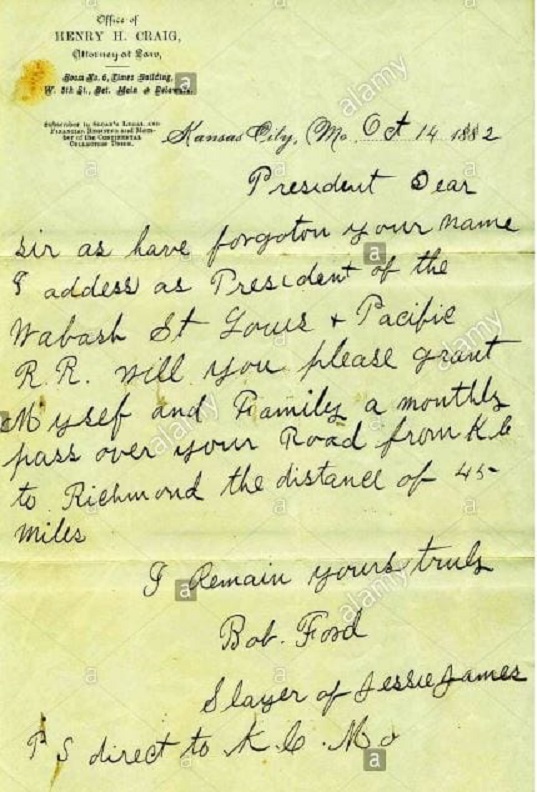 Office of
HENRY H. CRAIG,
Attorney at Law,
Room No. 6, Times Building,
W. 5th St., Bet. Main & Delaware.
Subscriber to Legal and
Financial Register and Mem-
ber of the CONTINENTAL
COLLECTION UNION.
Kansas City, Mo. Oct 14 1882
President Dear
sir as have forgoton your name
I addess as President of the
Wabash St Louis & Pacific
R.R. will you please grant
Mysef and Family a monthly
pass over your Road from K.C
to Richmond the distance of 45
miles
I Remain yours truly
Bob. Ford
Slayer of Jessie James
P S direct to K.C. Mo
alamy
a